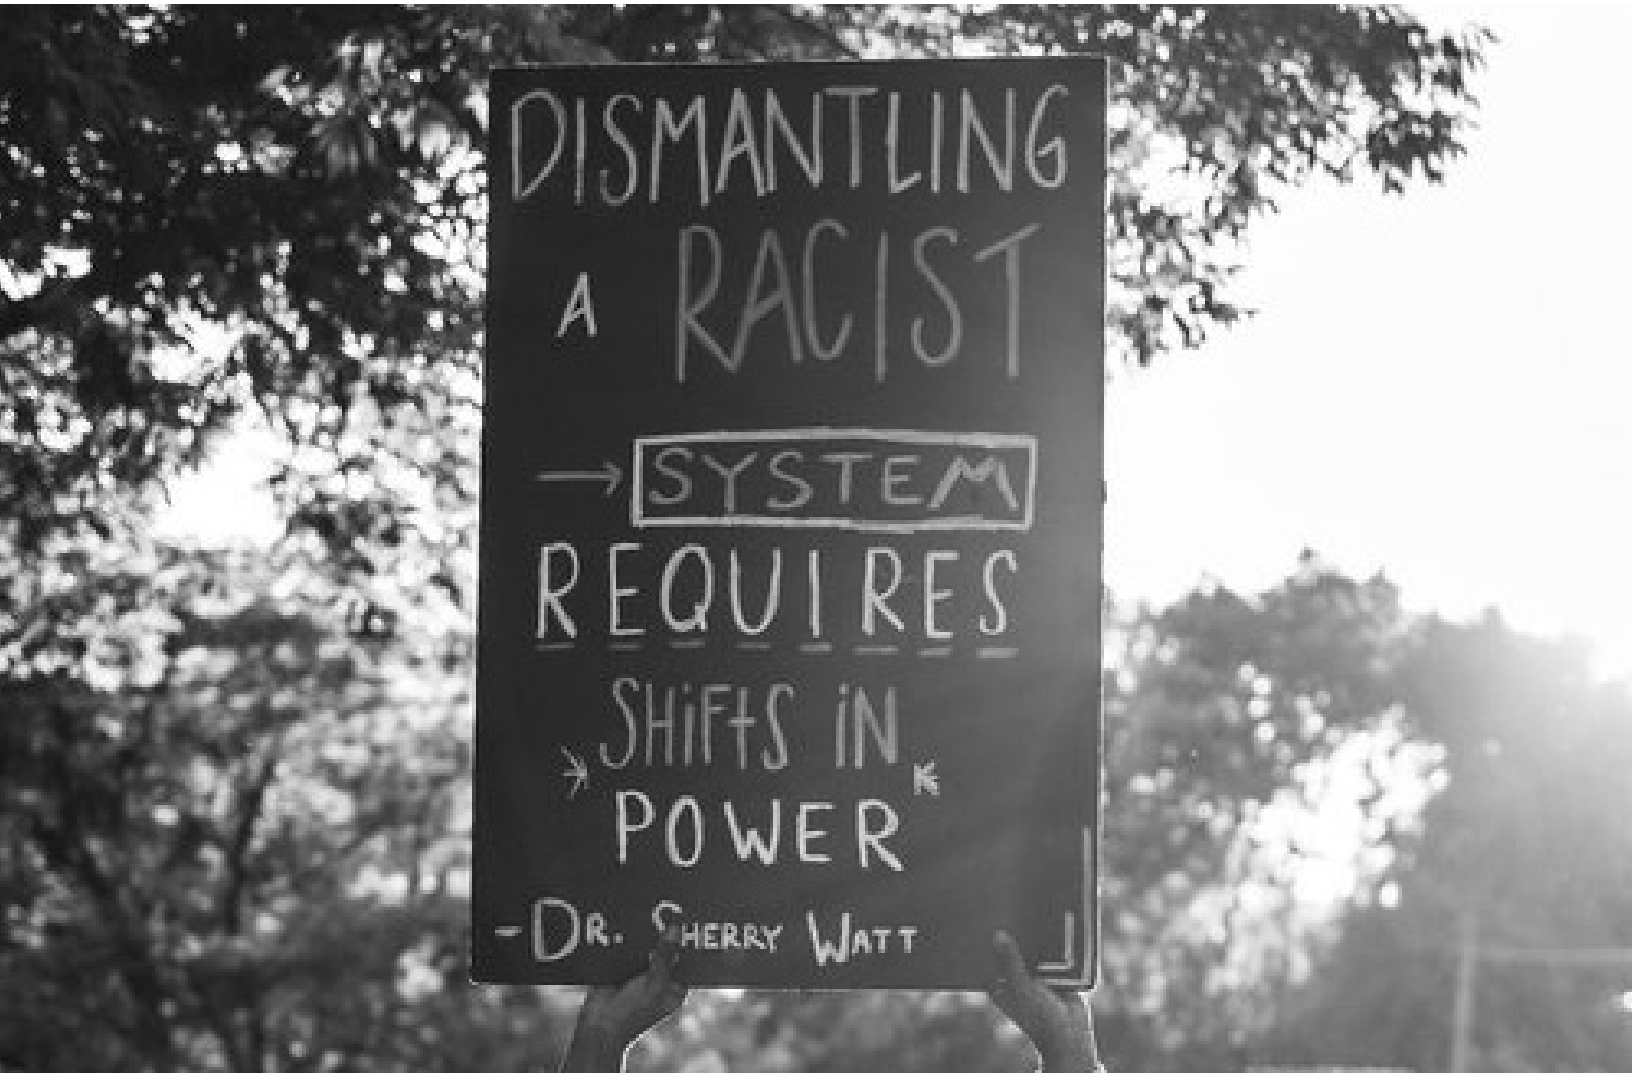 DISMANTLING
A RACIST
→ SYSTEM
REQUIRES
SHiFtS iN
POWER
- DR. SHERRY WATT